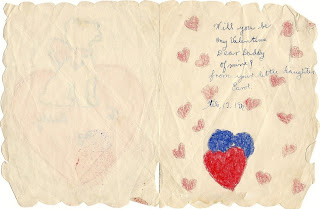 Will you be
my Valentine
Dear Daddy
of mine?
from your little daughter
Feb. 12.